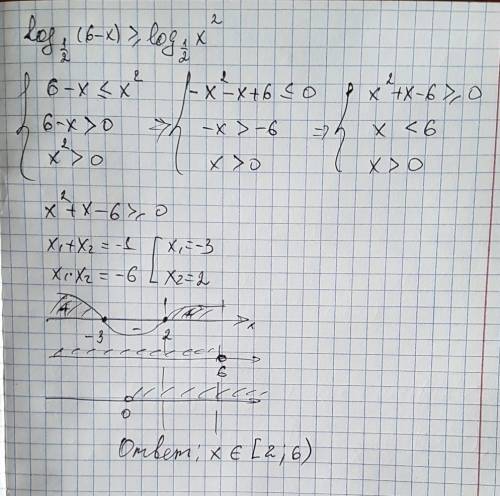 log½(6-x) ≥ log½ x²
{ 6-x ≤ x² ⇒ { -x²-x+6 ≤ 0 ⇒ { x²+x-6 ≥ 0
6-x > 0 -x > -6 x < 6
x² > 0 x > 0 x > 0
x²+x-6 ≥ 0
x₁+x₂ = -1 [ x₁ = -3
x₁·x₂ = -6 x₂ = 2
+ - + x
-3 2
6
0
Ответ: x ∈ [2; 6)